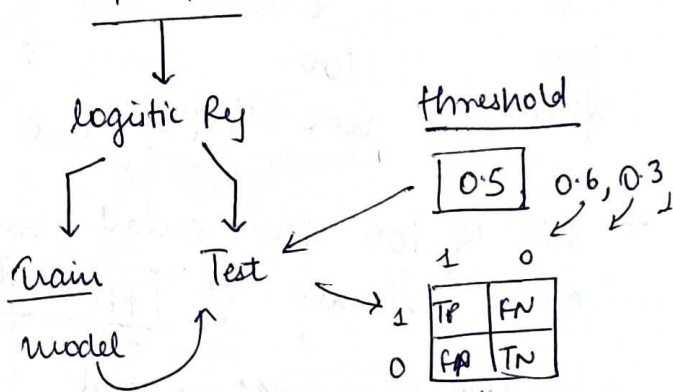 logistic Reg
threshold
0.5 0.6, 0.3
Train Test
model
1 0
1 TP FN
0 FP TN